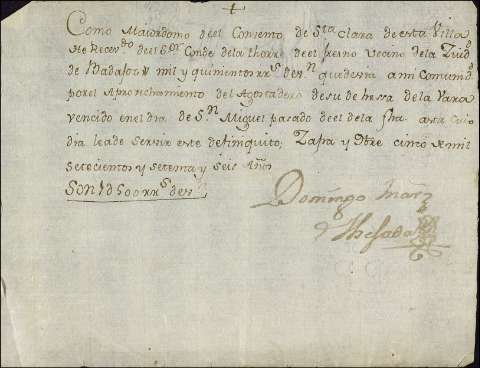 Como Maiordomo del Combento de Sta. Clara de esta Villa
He Recevdo. del Sor. Conde dela thorre del fresno Vecino dela Ziud.
de Badajoz mil y quinientos rrs. de vn. que deva a mi Comunid.
por el Aprovechamiento del Agostadero de su dehessa de la Vara
vencido en el dia de Sn. Miguel pasado de el dela fha asta cuio
dia leade servir este de finiquito; Zafra y Obre cinco de mil
setecientos y setenta y seis Años
SON 1d500 rrs. de vn.
Domingo Marz.
Thesada